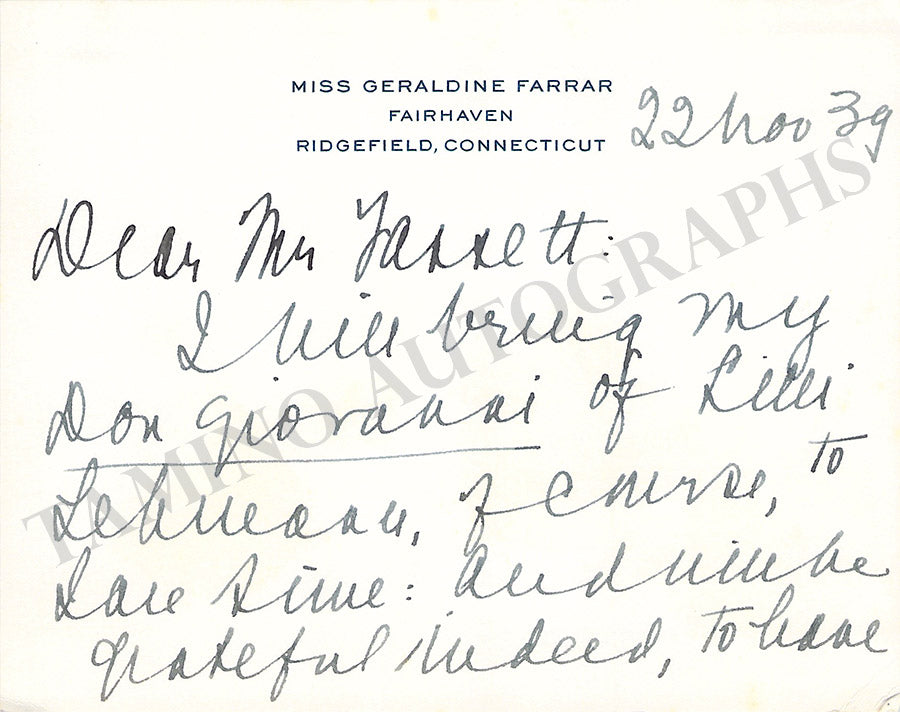 MISS GERALDINE FARRAR
FAIRHAVEN
RIDGEFIELD, CONNECTICUT
22 Nov 39
Dear Mr Fassett:
I will bring my
Don Giovanni of Lilli
Lehmann, of course, to
save time: and will be
grateful indeed, to have
TAMINO AUTOGRAPHS